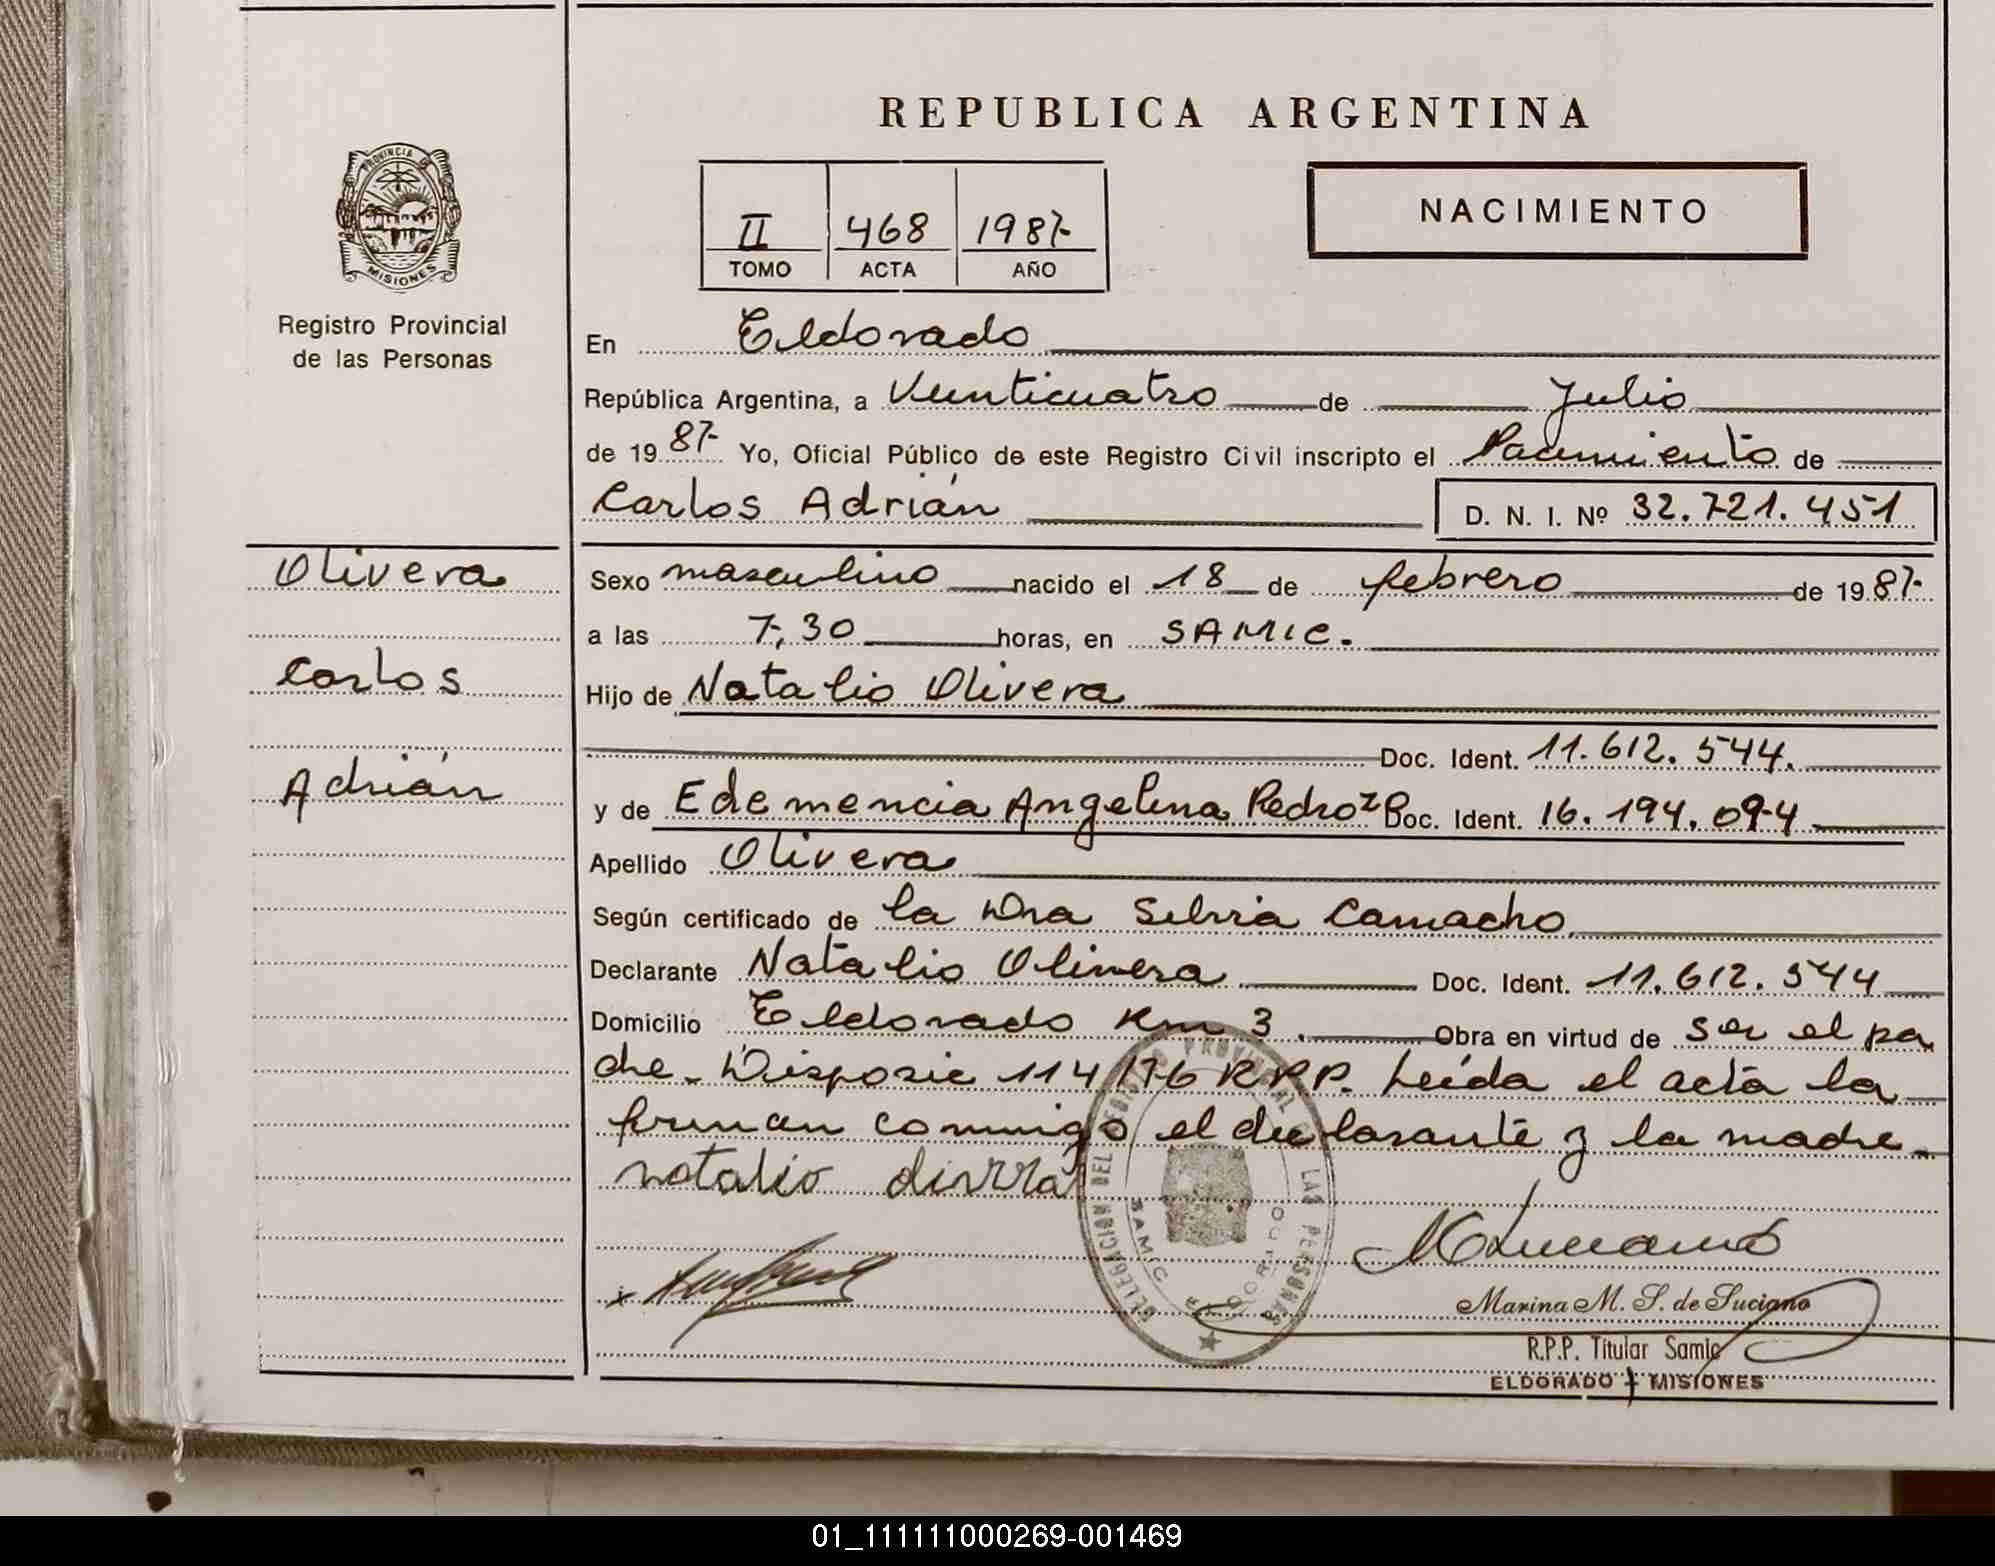 REPUBLICA ARGENTINA
PROVINCIA DE
MISIONES
Registro Provincial
de las Personas
II 468 1987-
TOMO ACTA AÑO
NACIMIENTO
En Eldorado
República Argentina, a Veinticuatro de Julio
de 1987- Yo, Oficial Público de este Registro Civil inscripto el Nacimiento de
Carlos Adrián D. N. I. Nº 32.721.451
Olivera
Carlos
Adrián
Sexo masculino nacido el 18 de febrero de 1987-
a las 7,30 horas, en SAMIC.
Hijo de Natalio Olivera
Doc. Ident. 11.612.544.
y de Edemencia Angelina Pedrozo Doc. Ident. 16.194.094
Apellido Olivera
Según certificado de la Dra Silvia Camacho.
Declarante Natalio Olivera Doc. Ident. 11.612.544
Domicilio Eldorado Km 3. Obra en virtud de ser el pa
dre. Disposic 114/76 R.P.P. Leída el acta la
firman conmigo el declarante y la madre.
natalio
DELEGACION DEL REGISTRO PROVINCIAL DE LAS PERSONAS
SAMIC ELDORADO
Marina M. S. de Luciano
R.P.P. Titular Samic
ELDORADO - MISIONES
01_111111000269-001469